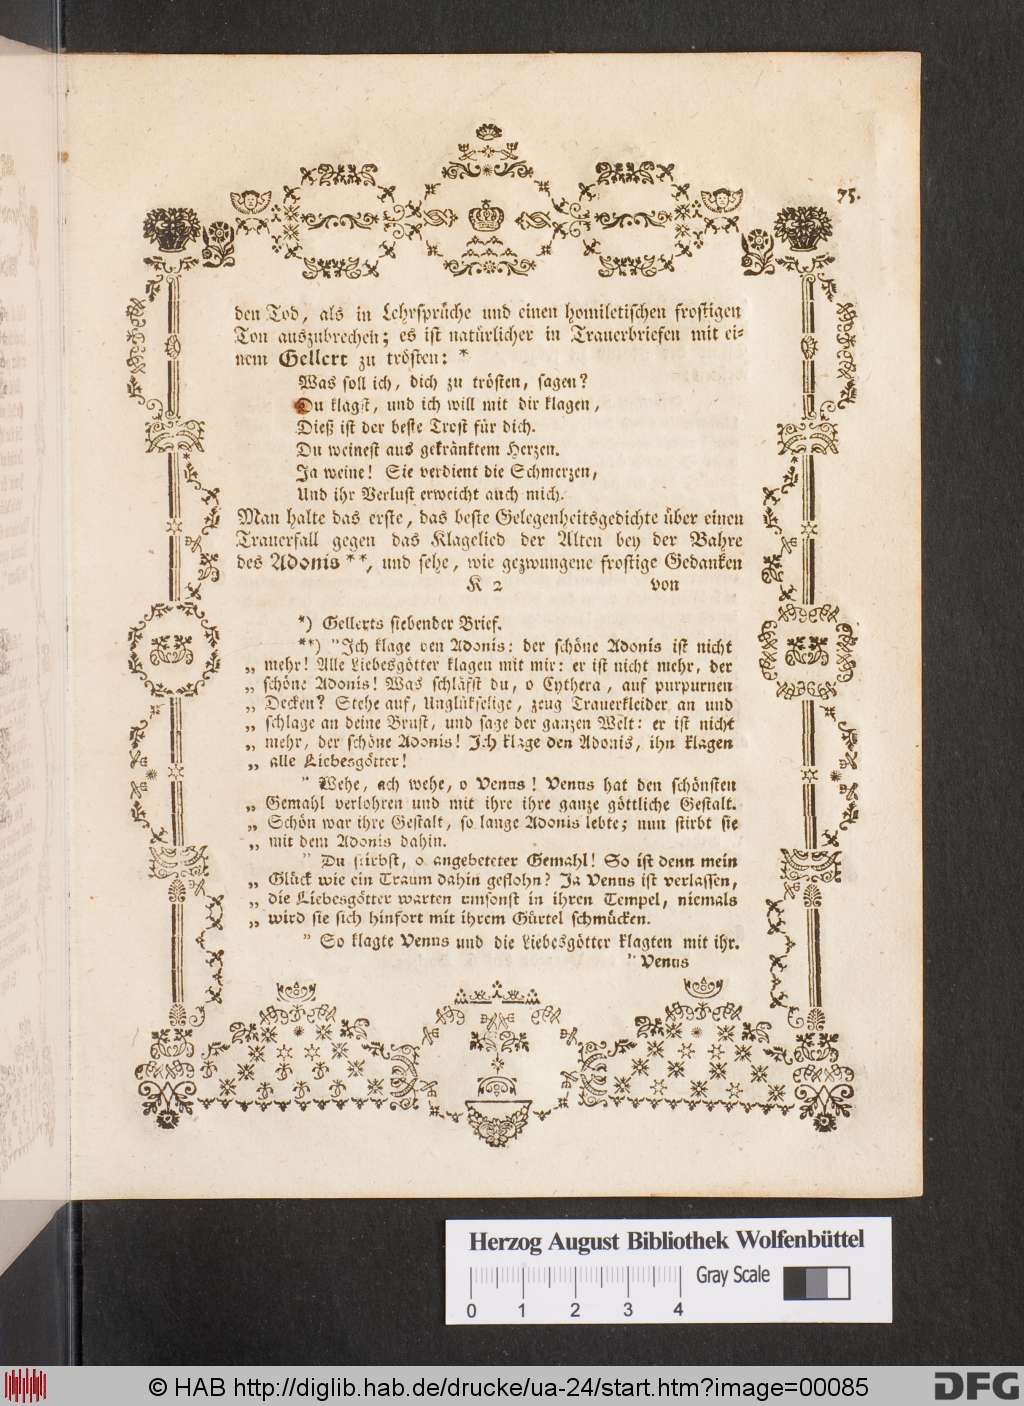 75.
den Tod, als in Lehrsprüche und einen homiletischen frostigen
Ton auszubrechen; es ist natürlicher in Trauerbriefen mit ei-
nem Gellert zu trösten: *
Was soll ich, dich zu trösten, sagen?
Du klagst, und ich will mit dir klagen,
Dieß ist der beste Trost für dich.
Du weinest aus gekränktem Herzen.
Ja weine! Sie verdient die Schmerzen,
Und ihr Verlust erweicht auch mich.
Man halte das erste, das beste Gelegenheitsgedichte über einen
Trauerfall gegen das Klagelied der Alten bey der Bahre
des Adonis **, und sehe, wie gezwungene frostige Gedanken
K 2 von
*) Gellerts siebender Brief.
**) "Ich klage den Adonis: der schöne Adonis ist nicht
„ mehr! Alle Liebesgötter klagen mit mir: er ist nicht mehr, der
„ schöne Adonis! Was schläfst du, o Cythera, auf purpurnen
„ Decken? Stehe auf, Unglükselige, zeug Trauerkleider an und
„ schlage an deine Brust, und sage der ganzen Welt: er ist nicht
„ mehr, der schöne Adonis! Ich klage den Adonis, ihn klagen
„ alle Liebesgötter!
" Wehe, ach wehe, o Venus! Venus hat den schönsten
„ Gemahl verlohren und mit ihre ihre ganze göttliche Gestalt.
„ Schön war ihre Gestalt, so lange Adonis lebte; nun stirbt sie
„ mit dem Adonis dahin.
" Du stirbst, o angebeteter Gemahl! So ist denn mein
„ Glück wie ein Traum dahin geflohn? Ja Venus ist verlassen,
„ die Liebesgötter warten umsonst in ihren Tempel, niemals
„ wird sie sich hinfort mit ihrem Gürtel schmücken.
" So klagte Venus und die Liebesgötter klagten mit ihr.
" Venus
Herzog August Bibliothek Wolfenbüttel
Gray Scale
0 1 2 3 4
© HAB http://diglib.hab.de/drucke/ua-24/start.htm?image=00085
DFG